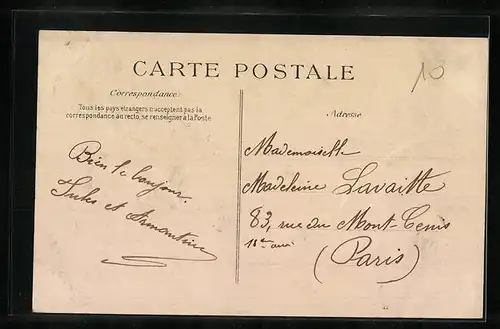 CARTE POSTALE
10
Correspondance:
Tous les pays étrangers n'acceptent pas la
correspondance au recto, se renseigner à la Poste
Adresse
Bien le bonjour.
Jules et Armantine
Mademoiselle
Madeleine Lavaitte
83, rue du Mont-Cenis
18ème arri
(Paris)